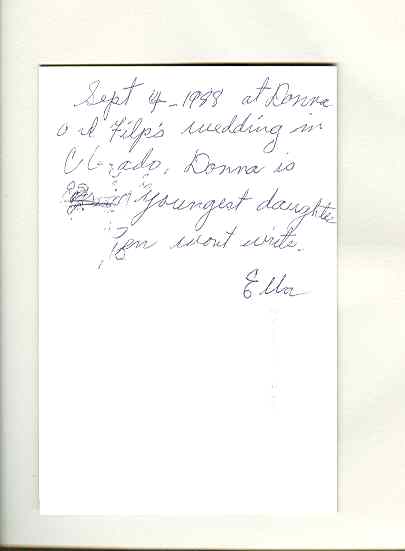 Sept 4-1988 at Donna
Filp's wedding in
Donna is
youngest daughter
Pen wont write.
Ella